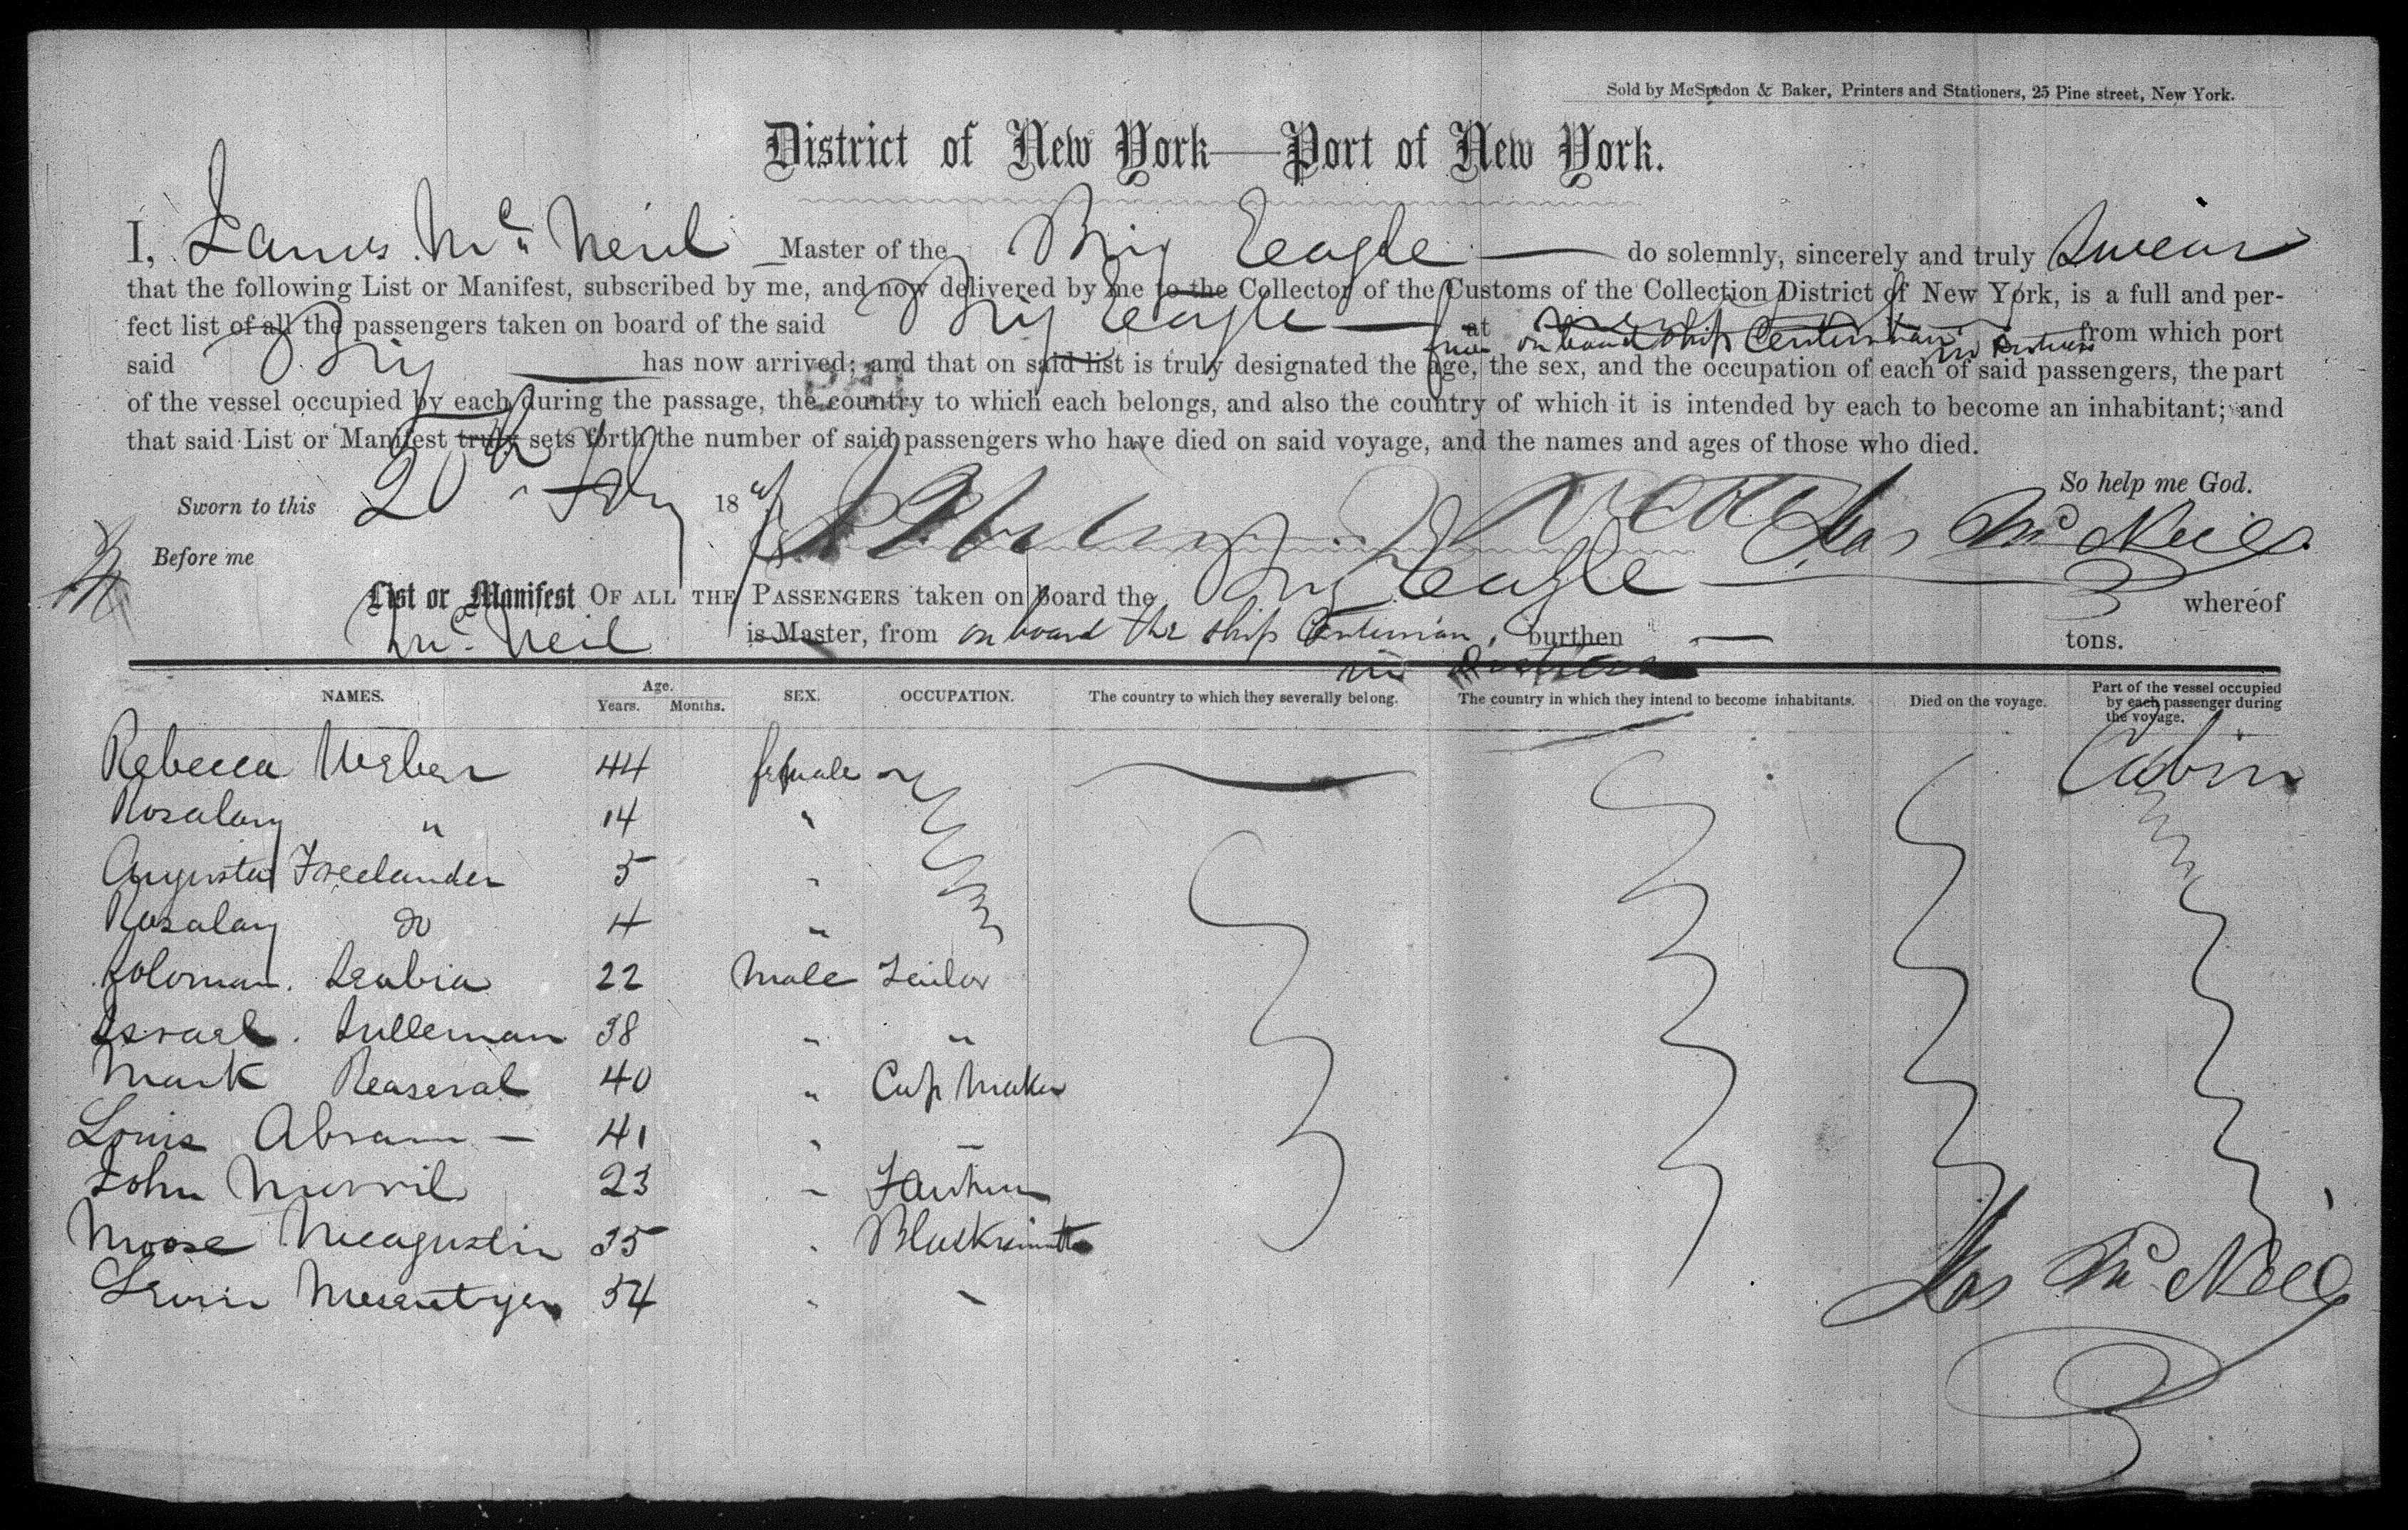 Sold by McSpedon & Baker, Printers and Stationers, 25 Pine street, New York.
District of New York—Port of New York.
I, James McNeil Master of the Brig Eagle — do solemnly, sincerely and truly swear
that the following List or Manifest, subscribed by me, and now delivered by me to the Collector of the Customs of the Collection District of New York, is a full and per-
fect list of all the passengers taken on board of the said Brig Eagle — at from which port
from on board Ship Centurion in distress
said Brig has now arrived; and that on said list is truly designated the age, the sex, and the occupation of each of said passengers, the part
of the vessel occupied by each during the passage, the country to which each belongs, and also the country of which it is intended by each to become an inhabitant; and
that said List or Manifest truly sets forth the number of said passengers who have died on said voyage, and the names and ages of those who died.
So help me God.
Sworn to this 20th July 18 Jas McNeil
Before me
List or Manifest OF ALL THE PASSENGERS taken on board the Brig Eagle — whereof
McNeil is Master, from on board the Ship Centurion, burthen — tons.
in distress
NAMES. Age. Years. Months. SEX. OCCUPATION. The country to which they severally belong. The country in which they intend to become inhabitants. Died on the voyage. Part of the vessel occupied by each passenger during the voyage.
Rebecca Weber 44 female Cabin
Rosalay " 14 "
Augusta Freelander 5 "
Rosalay do 4 "
Soloman. 22 Male Tailor
Israel. Sulleman 38 " "
Mark Reaseral 40 " Cap Maker
Louis Abram — 41 " —
John Murril 23 "
Moose Mcagustin 35 " Blacksmith
34 " "
Jas McNeil